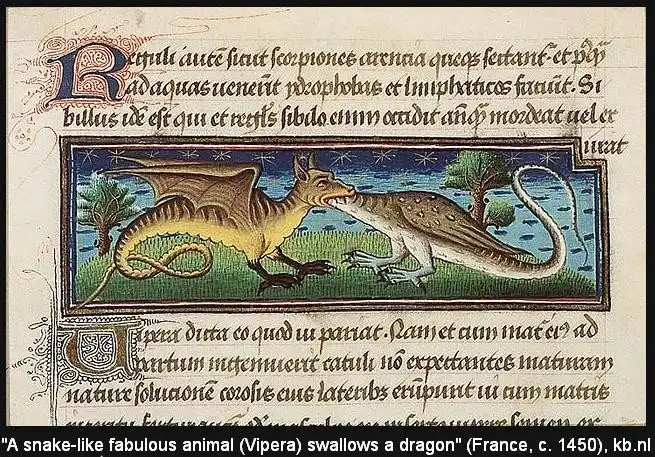 Reguli autē sicut scorpiones arencia queqꝫ sectant᷑ et
ad aquas uenerīt ydrophobas et limphaticos faciūt. Si
billus idē est qui et sibilo enim occidit anq̄ mordeat uel ex
urat
Uipera dicta eo quod ui pariat. Nam et cum ad
partum ingemuerit catuli nō expectantes maturam
nature solucionē corosis eius lateribꝫ erūpunt ui cum matris
"A snake-like fabulous animal (Vipera) swallows a dragon" (France, c. 1450), kb.nl